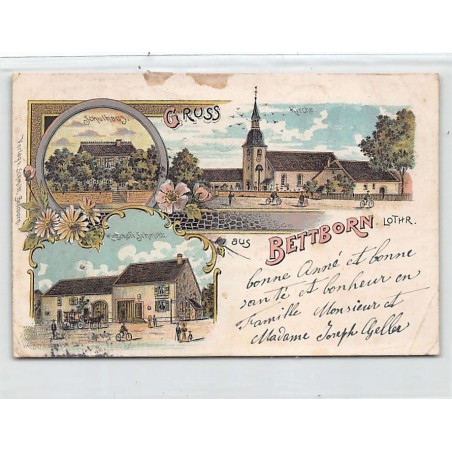 Schulhaus.
GRUSS
Kirche
aus
BETTBORN LOTHR.
bonne Anné et bonne
santé et bonheur en
Famille Monsieur et
Madame Joseph